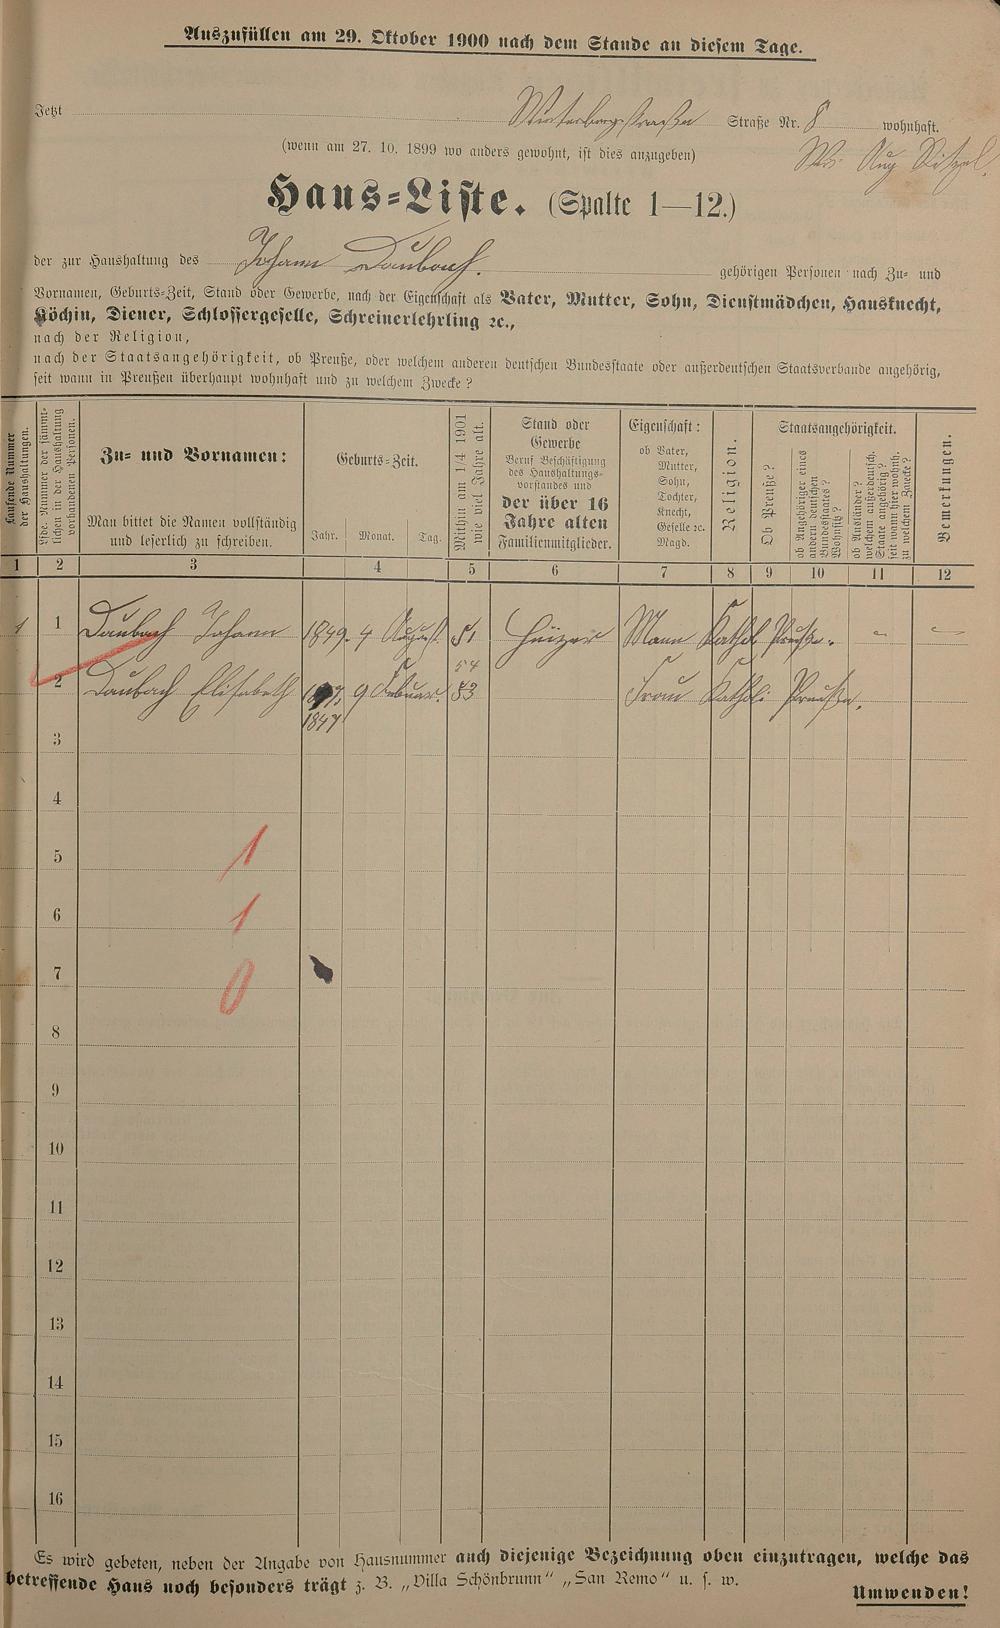 Auszufüllen am 29. Oktober 1900 nach dem Stande an diesem Tage.
Jetzt Winterbergstraße Straße Nr. 8 wohnhaft.
(wenn am 27. 10. 1899 wo anders gewohnt, ist dies anzugeben)
Aug
Haus=Liste. (Spalte 1—12.)
der zur Haushaltung des Johann Daubach. gehörigen Personen nach Zu- und
Vornamen, Geburts=Zeit, Stand oder Gewerbe, nach der Eigenschaft als Vater, Mutter, Sohn, Dienstmädchen, Hausknecht,
Köchin, Diener, Schlossergeselle, Schreinerlehrling ec.,
nach der Religion,
nach der Staatsangehörigkeit, ob Preuße, oder welchem anderen deutschen Bundesstaate oder außerdeutschen Staatsverbande angehörig,
seit wann in Preußen überhaupt wohnhaft und zu welchem Zwecke?
Laufende Nummer
der Haushaltungen.
Lfde. Nummer der sämmt-
lichen in der Haushaltung
vorhandenen Personen.
Zu= und Vornamen:
Man bittet die Namen vollständig
und leserlich zu schreiben.
Geburts=Zeit.
Jahr. Monat. Tag.
Mithin am 1/4 1901
wie viel Jahre alt.
Stand oder
Gewerbe
Beruf Beschäftigung
des Haushaltungs-
vorstandes und
der über 16
Jahre alten
Familienmitglieder.
Eigenschaft:
ob Vater,
Mutter,
Sohn,
Tochter,
Knecht,
Geselle ec.
Magd.
Religion.
Staatsangehörigkeit.
Ob Preuße?
ob Angehöriger eines
andern deutschen
Bundesstaates?
Wohnsitz?
ob Ausländer?
welchem außerdeutsch.
Staate angehörig?
seit wann hier wohnh.
zu welchem Zwecke?
Bemerkungen.
1 2 3 4 5 6 7 8 9 10 11 12
1 1 Daubach Johann 1849. 4 August. 51 Heizer Mann Kathol Preuße. - -
54
2 Daubach Elisabeth 9 Februar. 53 Frau Katholi Preußen.
1847
3
4
5 1
6 1
7 0
8
9
10
11
12
13
14
15
16
Es wird gebeten, neben der Angabe von Hausnummer auch diejenige Bezeichnung oben einzutragen, welche das
betreffende Haus noch besonders trägt z. B. „Villa Schönbrunn“ „San Remo“ u. s. w.
Umwenden!